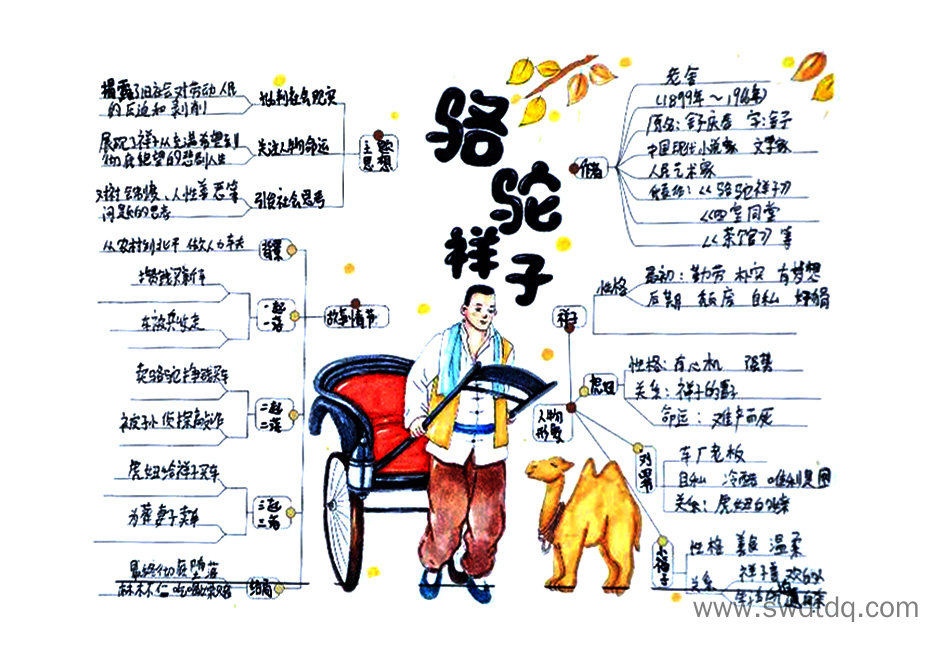 骆驼祥子
揭露了旧社会对劳动人民
的压迫和剥削
批判社会现实
展现了祥子从充满希望到
彻底绝望的悲剧人生
关注人物命运
对社会制度、人性善恶等
问题的思考
引发社会思考
主题
思想
从农村到北平 做人力车夫
背景
攒钱买新车
车被兵抢走
一起
一落
故事情节
卖骆驼挣钱买车
被孙侦探敲诈
二起
二落
虎妞给祥子买车
为葬妻子卖车
三起
三落
最终彻底堕落
麻木不仁
结局
作者
老舍
(1899年~1966年)
原名:舒庆春 字:舍予
中国现代小说家 文学家
人民艺术家
代表作:《骆驼祥子》
《四世同堂
《茶馆》等
人物
形象
祥子
性格
最初:勤劳 朴实 有梦想
后期 颓废 自私
虎妞
性格:有心机 强势
关系:祥子的妻子
命运:难产而死
刘四爷
车厂老板
自私 冷酷 唯利是图
关系:虎妞的父亲
小福子
性格 善良 温柔
关系
祥子喜欢的人
www.swdtdq.com